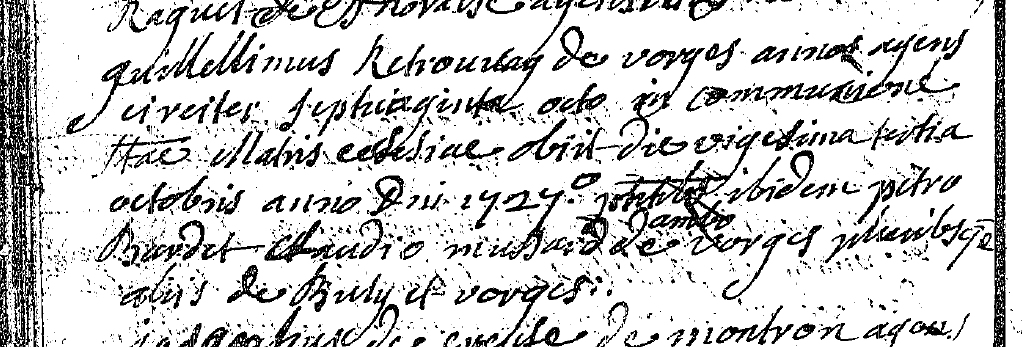 Raquet de
guillelimus Retrouvay de vorges annos agens
circiter septuaginta octo in communione
Stae Matris ecclesiae obiit die vigesima tertia
octobris anno Dni 1727° ptibus ibidem petro
ambo
Bardet Claudio mussard de vorges pluribsqe
aliis de Buly et vorges.
de de montron agens